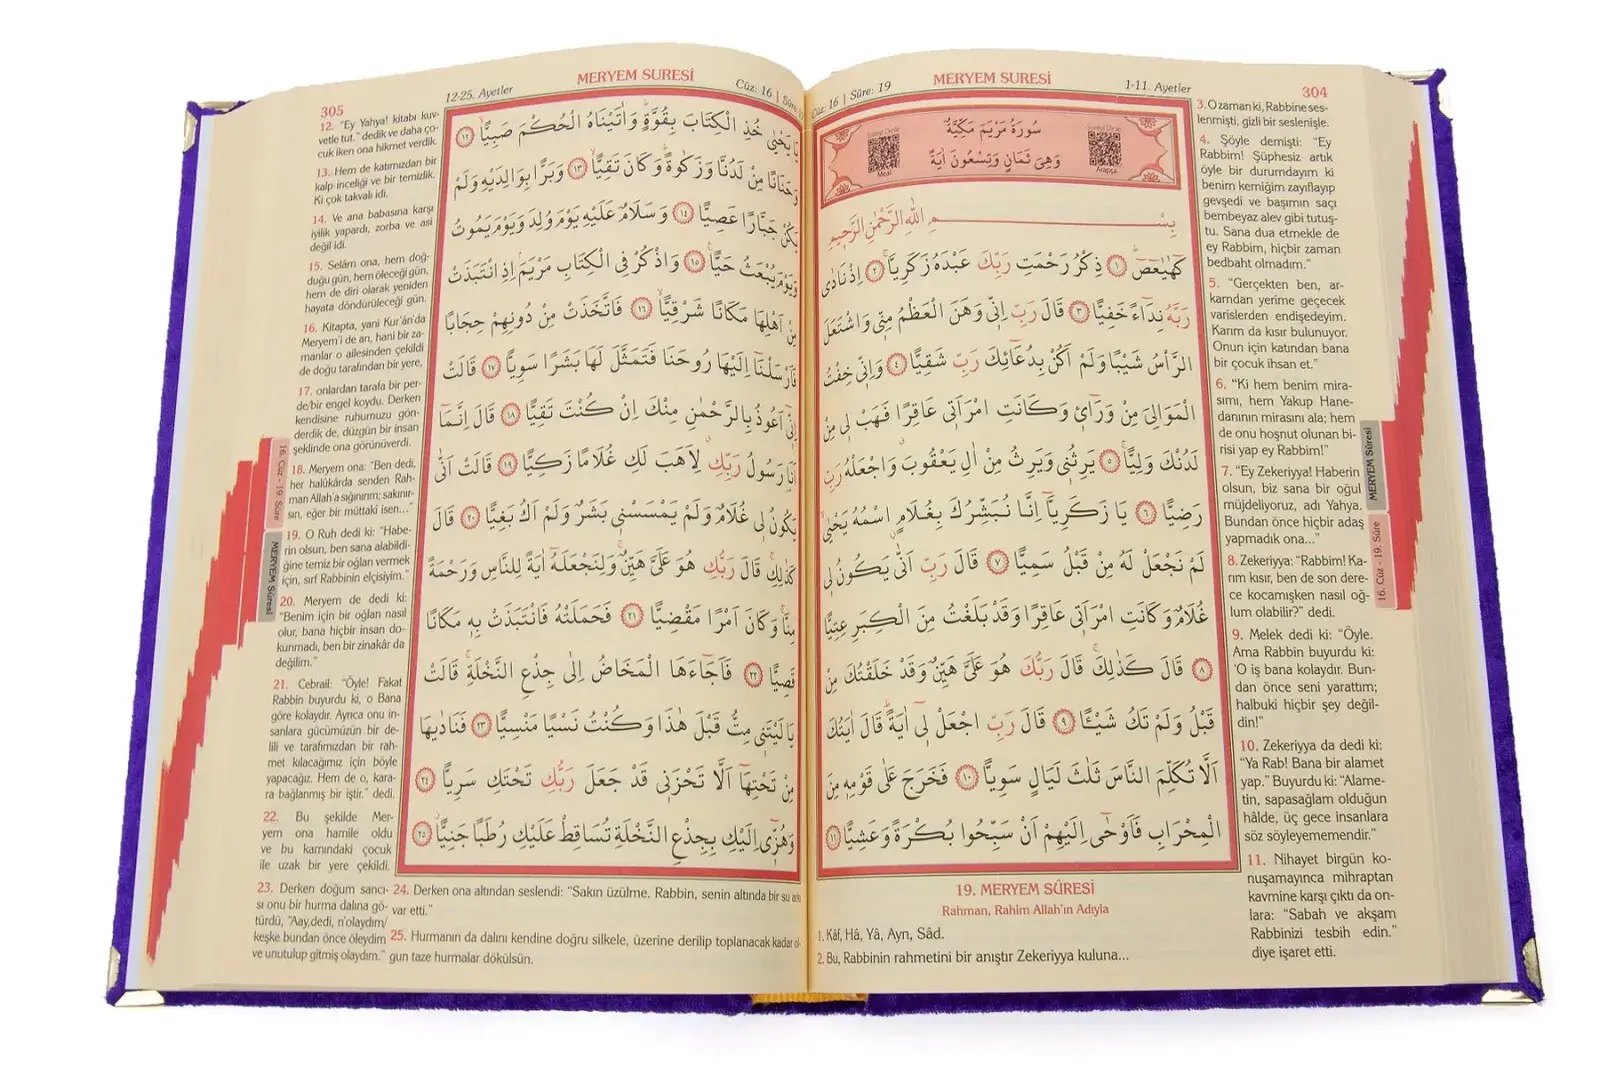 304
1-11. Ayetler
MERYEM SURESİ
Cüz: 16 | Sûre: 19
سُورَةُ مَرْيَمَ مَكِّيَّةٌ
وَهِيَ ثَمَانٍ وَتِسْعُونَ اٰيَةً
Meal
Arapça
بِسْمِ اللّٰهِ الرَّحْمٰنِ الرَّحِيمِ
كٓهٰيٰعٓصٓ ١ ذِكْرُ رَحْمَتِ رَبِّكَ عَبْدَهُ زَكَرِيَّا ٢ اِذْ نَادٰى
رَبَّهُ نِدَٓاءً خَفِيًّا ٣ قَالَ رَبِّ اِنّ۪ي وَهَنَ الْعَظْمُ مِنّ۪ي وَاشْتَعَلَ
الرَّأْسُ شَيْبًا وَلَمْ اَكُنْ بِدُعَٓائِكَ رَبِّ شَقِيًّا ٤ وَاِنّ۪ي خِفْتُ
الْمَوَالِيَ مِنْ وَرَٓاء۪ي وَكَانَتِ امْرَاَت۪ي عَاقِرًا فَهَبْ ل۪ي مِنْ
لَدُنْكَ وَلِيًّا ٥ يَرِثُن۪ي وَيَرِثُ مِنْ اٰلِ يَعْقُوبَ وَاجْعَلْهُ رَبِّ
رَضِيًّا ٦ يَا زَكَرِيَّٓا اِنَّا نُبَشِّرُكَ بِغُلَامٍ اسْمُهُ يَحْيٰى
لَمْ نَجْعَلْ لَهُ مِنْ قَبْلُ سَمِيًّا ٧ قَالَ رَبِّ اَنّٰى يَكُونُ ل۪ي
غُلَامٌ وَكَانَتِ امْرَاَت۪ي عَاقِرًا وَقَدْ بَلَغْتُ مِنَ الْكِبَرِ عِتِيًّا
٨ قَالَ كَذٰلِكَ قَالَ رَبُّكَ هُوَ عَلَيَّ هَيِّنٌ وَقَدْ خَلَقْتُكَ مِنْ
قَبْلُ وَلَمْ تَكُ شَيْـًٔا ٩ قَالَ رَبِّ اجْعَلْ ل۪ٓي اٰيَةً قَالَ اٰيَتُكَ
اَلَّا تُكَلِّمَ النَّاسَ ثَلٰثَ لَيَالٍ سَوِيًّا ١٠ فَخَرَجَ عَلٰى قَوْمِه۪ مِنَ
الْمِحْرَابِ فَاَوْحٰٓى اِلَيْهِمْ اَنْ سَبِّحُوا بُكْرَةً وَعَشِيًّا ١١
19. MERYEM SÛRESİ
Rahman, Rahim Allah'ın Adıyla
1. Kâf, Hâ, Yâ, Ayn, Sâd.
2. Bu, Rabbinin rahmetini bir anıştır Zekeriyya kuluna...
3. O zaman ki, Rabbine ses-
lenmişti, gizli bir seslenişle.
4. Şöyle demişti: "Ey
Rabbim! Şüphesiz artık
öyle bir durumdayım ki
benim kemiğim zayıflayıp
gevşedi ve başımın saçı
bembeyaz alev gibi tutuş-
tu. Sana dua etmekle de
ey Rabbim, hiçbir zaman
bedbaht olmadım."
5. "Gerçekten ben, ar-
kamdan yerime geçecek
varislerden endişedeyim.
Karım da kısır bulunuyor.
Onun için katından bana
bir çocuk ihsan et."
6. "Ki hem benim mira-
sımı, hem Yakup Hane-
danının mirasını ala; hem
de onu hoşnut olunan bi-
risi yap ey Rabbim!"
7. "Ey Zekeriyya! Haberin
olsun, biz sana bir oğul
müjdeliyoruz, adı Yahya.
Bundan önce hiçbir adaş
yapmadık ona..."
8. Zekeriyya: "Rabbim! Ka-
rım kısır, ben de son dere-
ce kocamışken nasıl oğ-
lum olabilir?" dedi.
9. Melek dedi ki: "Öyle.
Ama Rabbin buyurdu ki:
'O iş bana kolaydır. Bun-
dan önce seni yarattım;
halbuki hiçbir şey değil-
din!"
10. Zekeriyya da dedi ki:
"Ya Rab! Bana bir alamet
yap." Buyurdu ki: "Alame-
tin, sapasağlam olduğun
hâlde, üç gece insanlara
söz söyleyememendir."
11. Nihayet birgün ko-
nuşamayınca mihraptan
kavmine karşı çıktı da on-
lara: "Sabah ve akşam
Rabbinizi tesbih edin."
diye işaret etti.
MERYEM Sûresi
16. Cüz - 19. Sûre
305
12-25. Ayetler
MERYEM SURESİ
Cüz: 16 | Sûre:
يَا يَحْيٰى خُذِ الْكِتَابَ بِقُوَّةٍ وَاٰتَيْنَاهُ الْحُكْمَ صَبِيًّا ١٢
وَحَنَانًا مِنْ لَدُنَّا وَزَكٰوةً وَكَانَ تَقِيًّا ١٣ وَبَرًّا بِوَالِدَيْهِ وَلَمْ
يَكُنْ جَبَّارًا عَصِيًّا ١٤ وَسَلَامٌ عَلَيْهِ يَوْمَ وُلِدَ وَيَوْمَ يَمُوتُ
وَيَوْمَ يُبْعَثُ حَيًّا ١٥ وَاذْكُرْ فِي الْكِتَابِ مَرْيَمَ اِذِ انْتَبَذَتْ
مِنْ اَهْلِهَا مَكَانًا شَرْقِيًّا ١٦ فَاتَّخَذَتْ مِنْ دُونِهِمْ حِجَابًا
فَاَرْسَلْنَٓا اِلَيْهَا رُوحَنَا فَتَمَثَّلَ لَهَا بَشَرًا سَوِيًّا ١٧ قَالَتْ
اِنّ۪ٓي اَعُوذُ بِالرَّحْمٰنِ مِنْكَ اِنْ كُنْتَ تَقِيًّا ١٨ قَالَ اِنَّمَٓا
اَنَا رَسُولُ رَبِّكِ لِاَهَبَ لَكِ غُلَامًا زَكِيًّا ١٩ قَالَتْ اَنّٰى
يَكُونُ ل۪ي غُلَامٌ وَلَمْ يَمْسَسْن۪ي بَشَرٌ وَلَمْ اَكُ بَغِيًّا ٢٠ قَالَ
كَذٰلِكِ قَالَ رَبُّكِ هُوَ عَلَيَّ هَيِّنٌ وَلِنَجْعَلَهُٓ اٰيَةً لِلنَّاسِ وَرَحْمَةً
مِنَّا وَكَانَ اَمْرًا مَقْضِيًّا ٢١ فَحَمَلَتْهُ فَانْتَبَذَتْ بِه۪ مَكَانًا
قَصِيًّا ٢٢ فَاَجَٓاءَهَا الْمَخَاضُ اِلٰى جِذْعِ النَّخْلَةِ قَالَتْ
يَا لَيْتَن۪ي مِتُّ قَبْلَ هٰذَا وَكُنْتُ نَسْيًا مَنْسِيًّا ٢٣ فَنَادٰيهَا
مِنْ تَحْتِهَٓا اَلَّا تَحْزَن۪ي قَدْ جَعَلَ رَبُّكِ تَحْتَكِ سَرِيًّا ٢٤
وَهُزّ۪ٓي اِلَيْكِ بِجِذْعِ النَّخْلَةِ تُسَاقِطْ عَلَيْكِ رُطَبًا جَنِيًّا ٢٥
12. "Ey Yahya! kitabı kuv-
vetle tut." dedik ve daha ço-
cuk iken ona hikmet verdik.
13. Hem de katımızdan bir
kalp inceliği ve bir temizlik.
Ki çok takvalı idi.
14. Ve ana babasına karşı
iyilik yapardı, zorba ve asi
değil idi.
15. Selâm ona, hem doğ-
duğu gün, hem öleceği gün,
hem de diri olarak yeniden
hayata döndürüleceği gün.
16. Kitapta, yani Kur'ân'da
Meryem'i de an, hani bir za-
manlar o ailesinden çekildi
de doğu tarafından bir yere,
17. onlardan tarafa bir per-
de/bir engel koydu. Derken
kendisine ruhumuzu gön-
derdik de, düzgün bir insan
şeklinde ona görünüverdi.
18. Meryem ona: "Ben dedi,
her halükârda senden Rah-
man Allah'a sığınırım; sakınır-
sın, eğer bir müttakî isen..."
19. O Ruh dedi ki: "Habe-
rin olsun, ben sana alabildi-
ğine temiz bir oğlan vermek
için, sırf Rabbinin elçisiyim."
20. Meryem de dedi ki:
"Benim için bir oğlan nasıl
olur, bana hiçbir insan do-
kunmadı, ben bir zinakâr da
değilim."
21. Cebrail: "Öyle! Fakat
Rabbin buyurdu ki, o Bana
göre kolaydır. Ayrıca onu in-
sanlara gücümüzün bir de-
lili ve tarafımızdan bir rah-
met kılacağımız için böyle
yapacağız. Hem de o, kara-
ra bağlanmış bir iştir." dedi.
22. Bu şekilde Mer-
yem ona hamile oldu
ve bu karnındaki çocuk
ile uzak bir yere çekildi.
23. Derken doğum sancı-
sı onu bir hurma dalına gö-
türdü, "Aay,dedi, n'olaydım/
keşke bundan önce öleydim
ve unutulup gitmiş olaydım."
24. Derken ona altından seslendi: "Sakın üzülme. Rabbin, senin altında bir su arkı
var etti."
25. Hurmanın da dalını kendine doğru silkele, üzerine derilip toplanacak kadar ol-
gun taze hurmalar dökülsün.
16. Cüz - 19. Sûre
MERYEM Sûresi